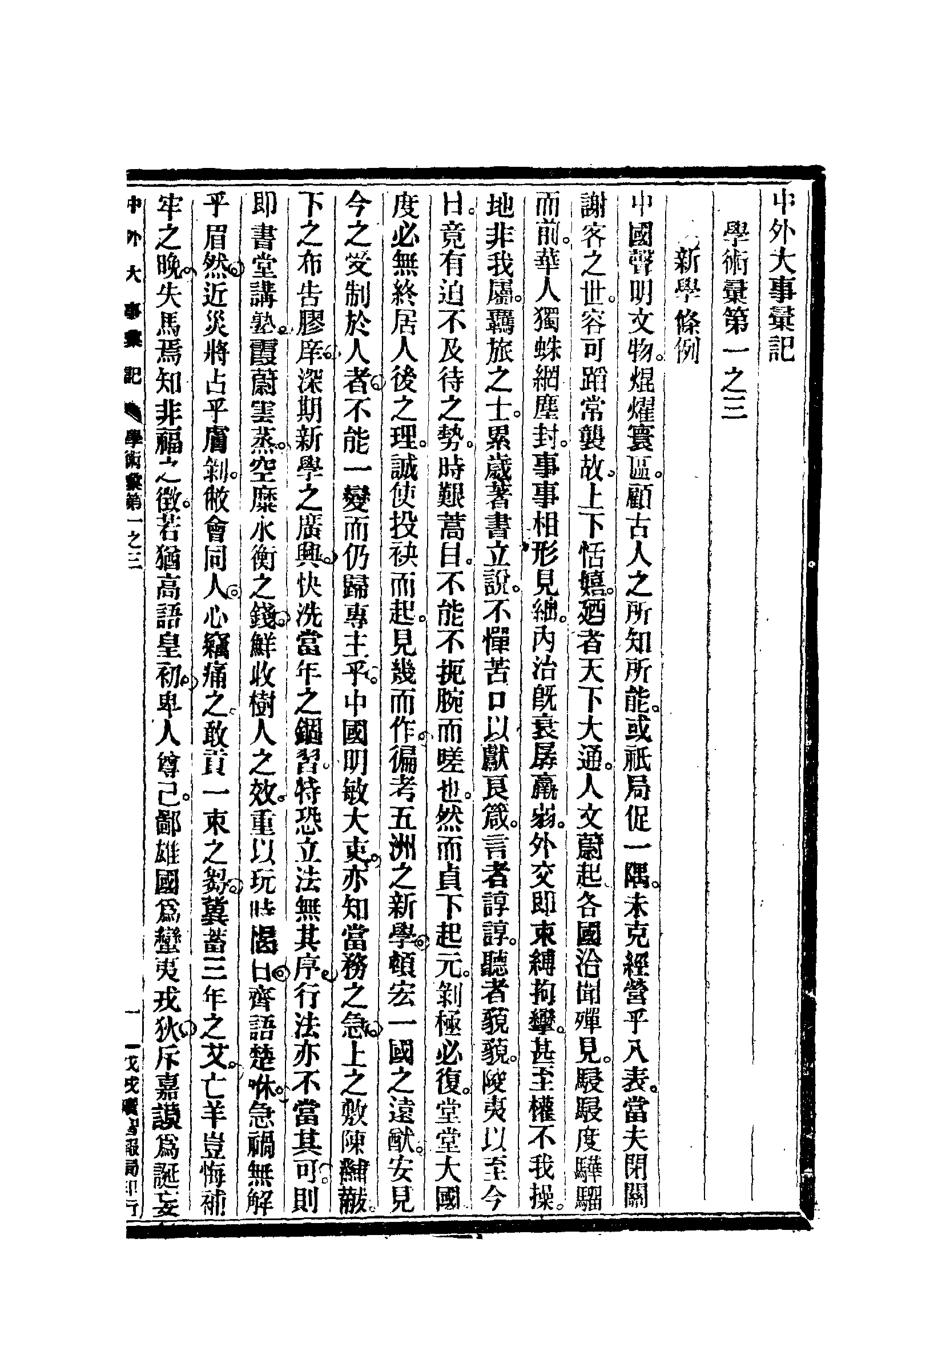 中外大事彙記
學術彙第一之三
新學條例
中國聲明文物。焜燿寰區。顧古人之所知所能。或祇局促一隅。未克經營乎八表。當夫閉關
謝客之世。容可蹈常襲故。上下恬嬉。廼者天下大通。人文蔚起。各國洽聞殫見。駸駸度驊騮
而前。華人獨蛛網塵封。事事相形見絀。內治旣衰孱羸弱。外交卽束縛拘攣。甚至權不我操。
地非我屬。羈旅之士。累歲著書立說。不憚苦口以獻良箴。言者諄諄。聽者藐藐。陵夷以至今
日。竟有迫不及待之勢。時艱蒿目。不能不扼腕而嗟也。然而貞下起元。剝極必復。堂堂大國
度必無終居人後之理。誠使投袂而起。見幾而作。徧考五洲之新學。頓宏一國之遠猷。安見
今之受制於人者。不能一變而仍歸專主乎。中國明敏大吏。亦知當務之急。上之敷陳黼黻。
下之布告膠庠。深期新學之廣興。快洗當年之錮習。特恐立法無其序。行法亦不當其可。則
卽書堂講塾。霞蔚雲蒸。空糜水衡之錢。鮮收樹人之效。重以玩時愒日。齊語楚咻。急禍無解
乎眉然。近災將占乎膚剝。敝會同人。心竊痛之。敢貢一束之芻。冀蓄三年之艾。亡羊豈悔補
牢之晚。失馬焉知非福之徵。若猶高語皇初。卑人尊己。鄙雄國爲蠻夷戎狄。斥嘉謨爲誕妄
中外大事彙記 學術彙第一之三 一 報局印行